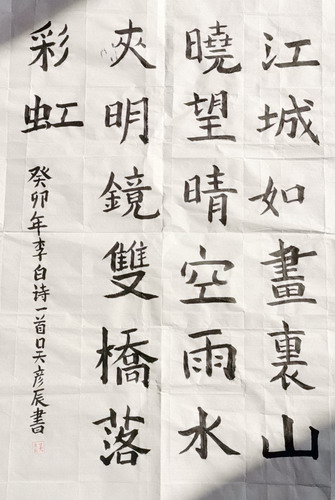 江城如畫裏山
曉望晴空雨水
夾明鏡雙橋落
彩虹
癸卯年李白诗一首口天彦辰書